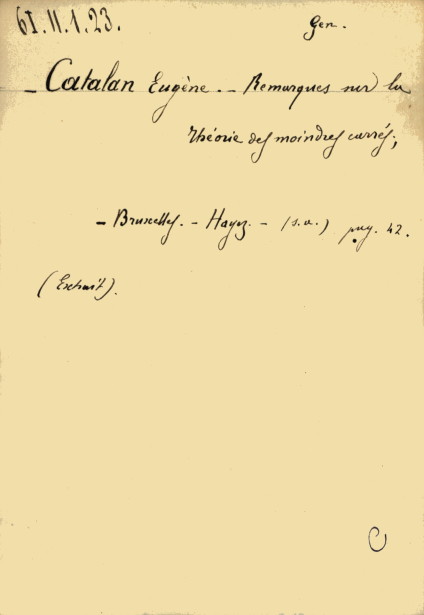 61.II.1.23.
Gen.
- Catalan Eugène. - Remarques sur la
théorie des moindres carrés;
- Bruxelles. - Hayez. - (s.a.) pag. 42.
(Extrait).
C